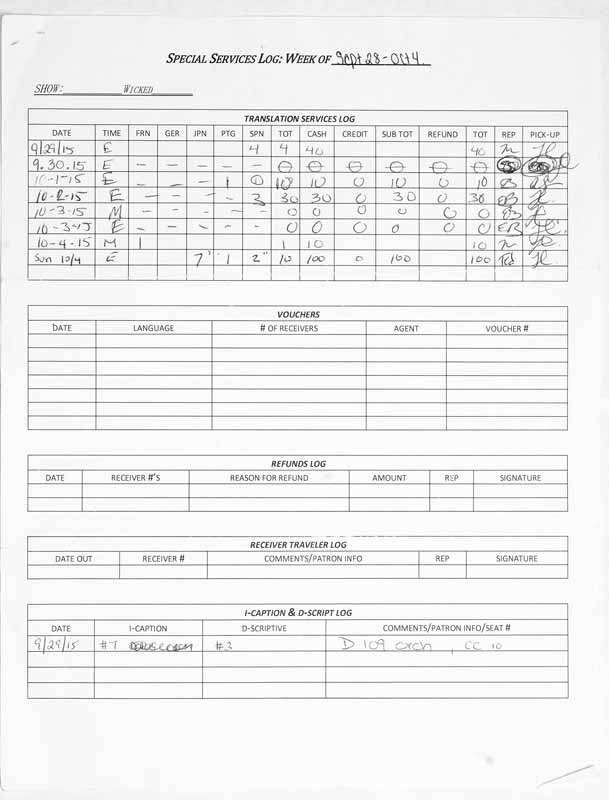 SPECIAL SERVICES LOG: WEEK OF Sept 28-Oct 4.
SHOW: WICKED
TRANSLATION SERVICES LOG
DATE TIME FRN GER JPN PTG SPN TOT CASH CREDIT SUB TOT REFUND TOT REP PICK-UP
9/29/15 E 4 4 40 40
9.30.15 E - - - - - 0 0 0 0 0 0
10-1-15 E - - - 1 0 10 0 10 0 10 EB
10-2-15 E - - - - 3 30 30 0 30 0 30 EB
10-3-15 M - - - - - 0 0 0 0 0 0 EB
10-3-15 E - - - - - 0 0 0 0 0 0 EB
10-4-15 M 1 1 10 10
Sun 10/4 E 7 1 2 10 100 0 100 100
VOUCHERS
DATE LANGUAGE # OF RECEIVERS AGENT VOUCHER #
REFUNDS LOG
DATE RECEIVER #'S REASON FOR REFUND AMOUNT REP SIGNATURE
RECEIVER TRAVELER LOG
DATE OUT RECEIVER # COMMENTS/PATRON INFO REP SIGNATURE
I-CAPTION & D-SCRIPT LOG
DATE I-CAPTION D-SCRIPTIVE COMMENTS/PATRON INFO/SEAT #
9/29/15 #7 #3 D 109 orch, CC 10